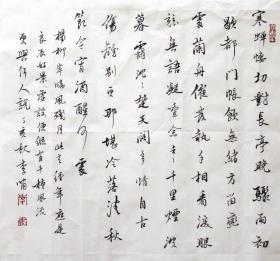 寒蟬悽切對長亭晚驟雨初
歇都門帳飲無緒方留戀
處蘭舟催發執手相看淚眼
竟無語凝噎念去去千里煙波
暮靄沈沈楚天闊多情自古
傷離別更那堪冷落清秋
節今宵酒醒何處
楊柳岸曉風殘月此去經年應是
良辰好景虛設便縱有千種風流
更與何人說丁亥秋李